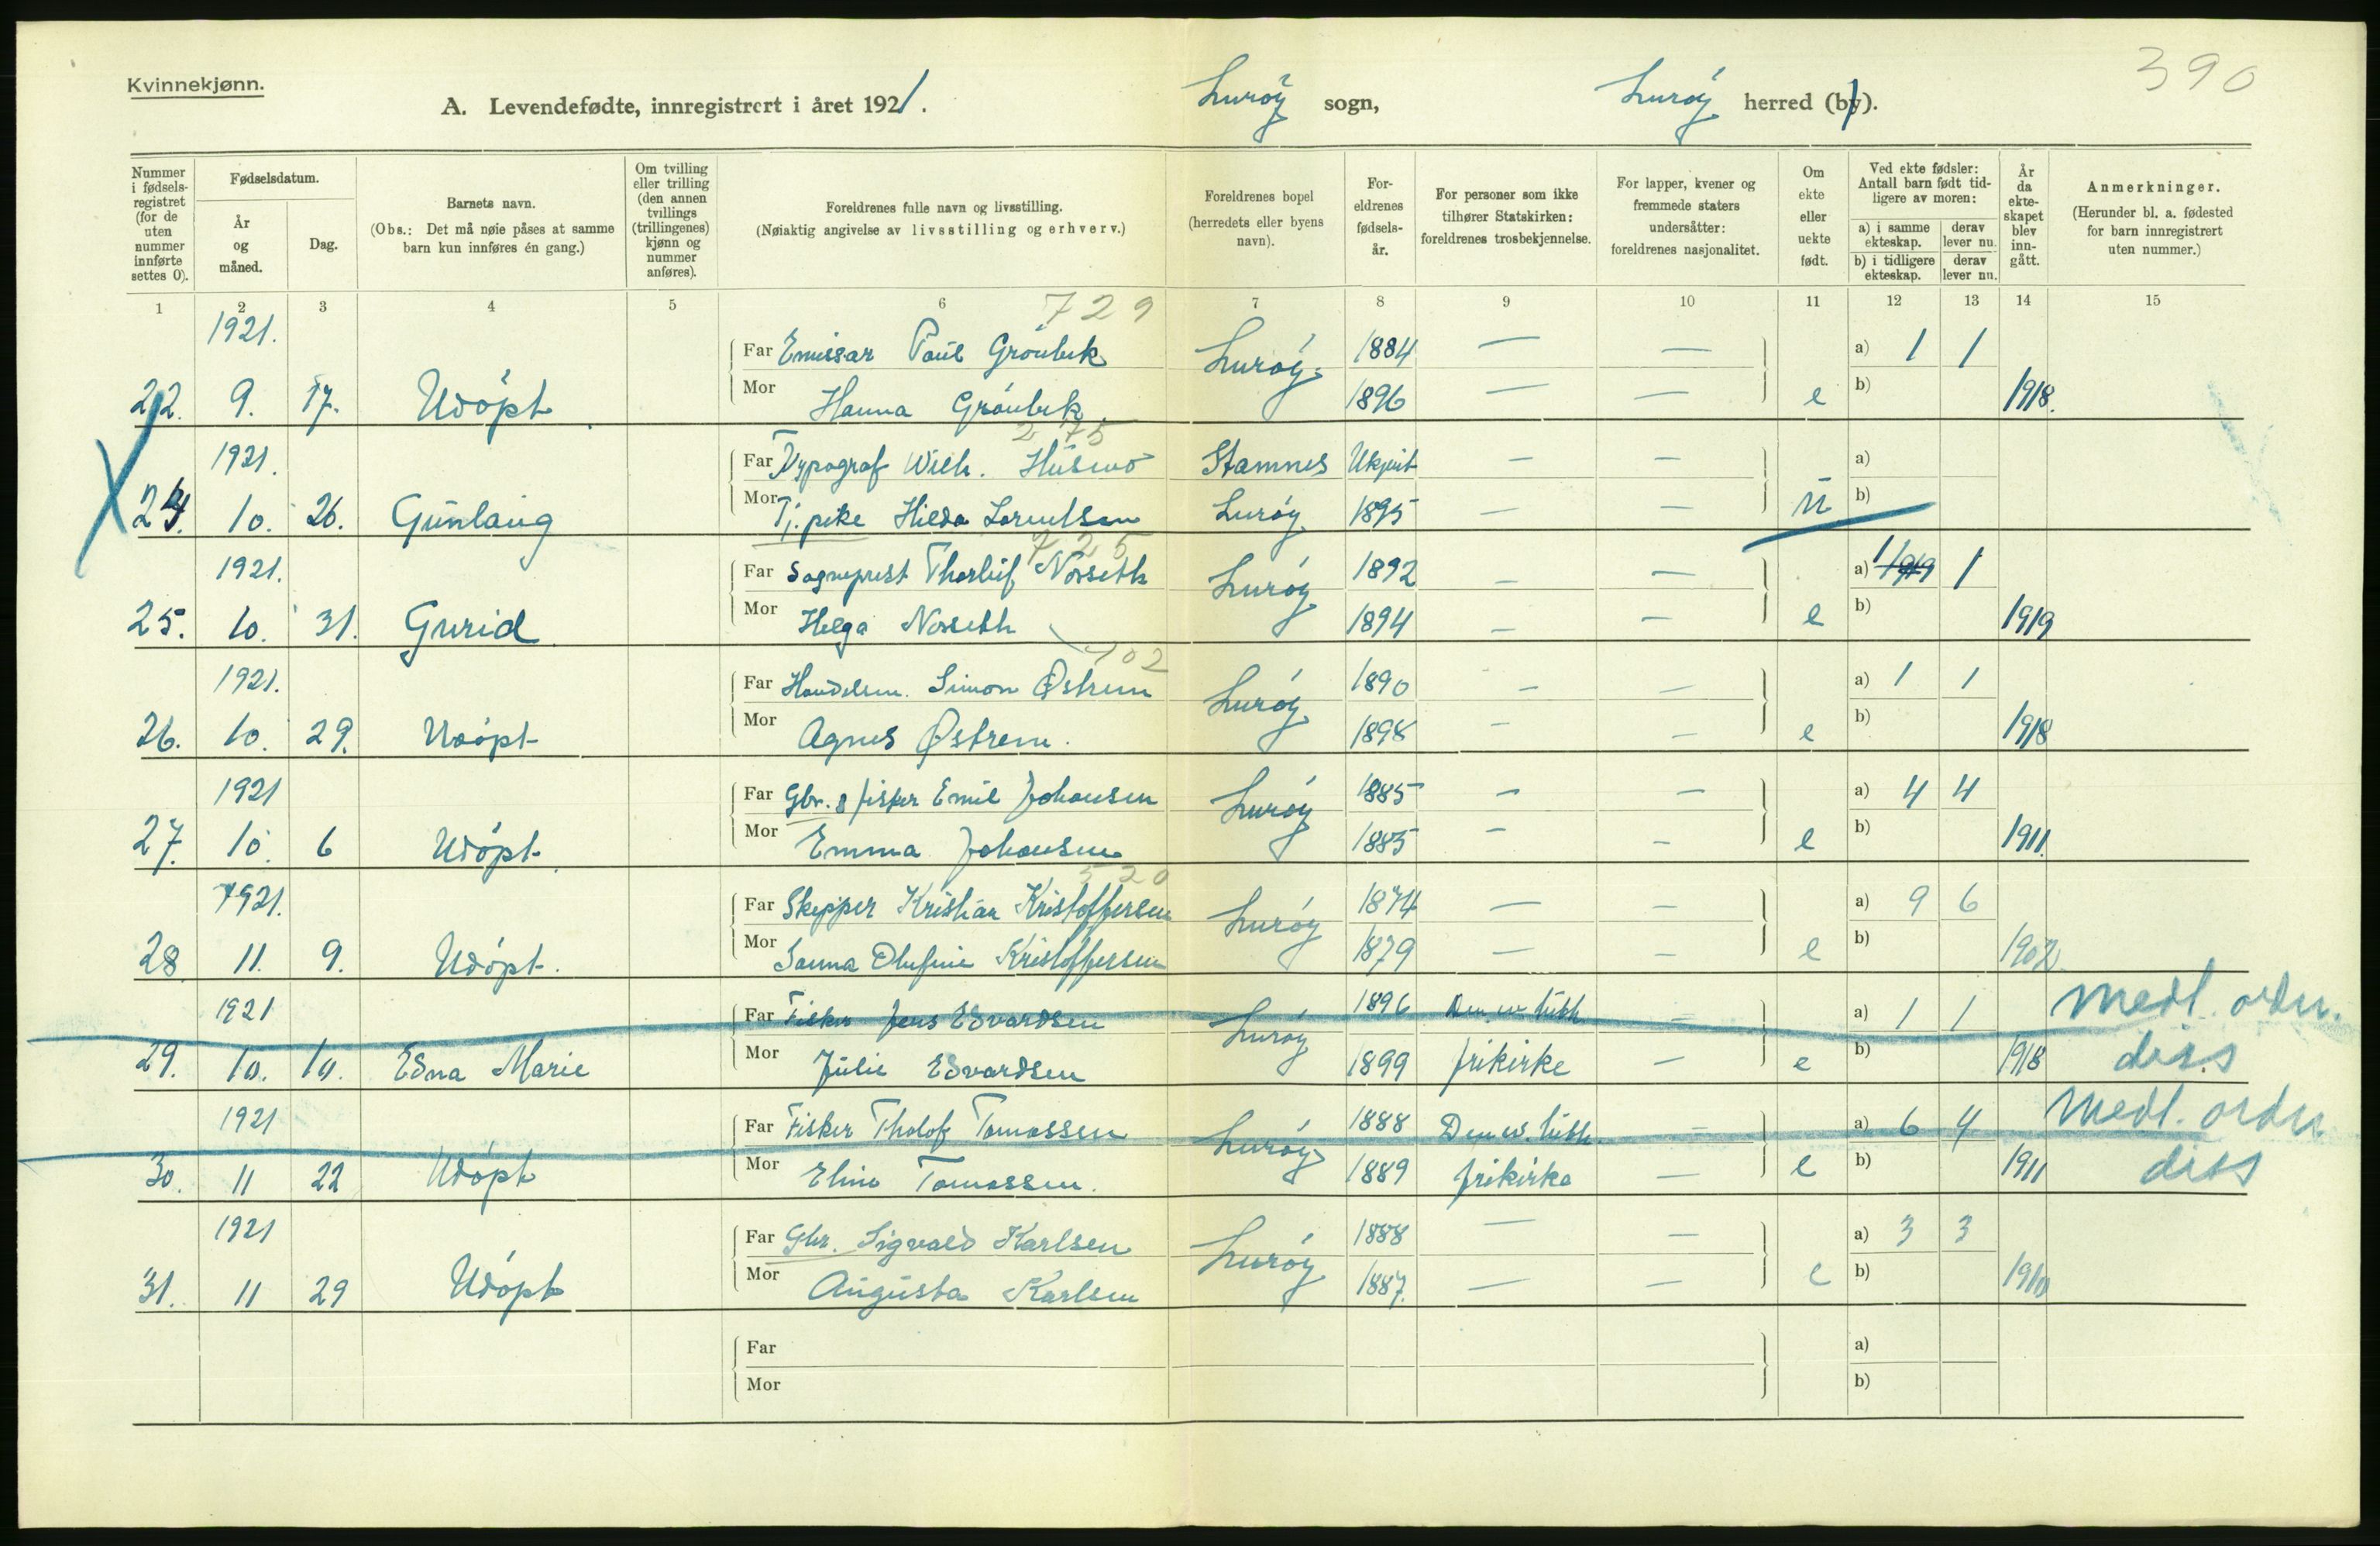 390
Kvinnekjønn.
A. Levendefødte, innregistrert i året 1921. Lurøy sogn, Lurøy herred (by).
Nummer i fødselsregistret (for de uten nummer innførte settes 0).
Fødselsdatum.
År og måned.
Dag.
Barnets navn.
(Obs.: Det må nøie påses at samme barn kun innføres én gang.)
Om tvilling eller trilling (den annen tvillings (trillingenes) kjønn og nummer anføres).
Foreldrenes fulle navn og livsstilling.
(Nøiaktig angivelse av livsstilling og erhverv.)
Foreldrenes bopel (herredets eller byens navn).
Foreldrenes fødselsår.
For personer som ikke tilhører Statskirken: foreldrenes trosbekjennelse.
For lapper, kvener og fremmede staters undersåtter: foreldrenes nasjonalitet.
Om ekte eller uekte født.
Ved ekte fødsler: Antall barn født tidligere av moren:
a) i samme ekteskap. derav lever nu.
b) i tidligere ekteskap. derav lever nu.
År da ekteskapet blev inngått.
Anmerkninger.
(Herunder bl. a. fødested for barn innregistrert uten nummer.)
1 2 3 4 5 6 7 8 9 10 11 12 13 14 15
729
1921. Far Emissar Paul Grönbek Lurøy 1884 — — a) 1 1
22. 9. 17. Udöpt Mor Hanna Grönbek 1896 — — e b) 1918.
275
1921. Far Typograf Wilh. Stamnes Ukjent — — a)
24. 10. 26. Gunlaug Mor Tj. pike Hilda Lorentsen Lurøy 1895 — — u b)
725
1921. Far Sogneprest Thorleif Norseth Lurøy 1892 — — a) 1 1
25. 10. 31. Gurid Mor Helga Norseth 1894 — — e b) 1919
702
1921. Far Handelsm. Simon Østrem Lurøy 1890 — — a) 1 1
26. 10. 29. Udöpt Mor Agnes Østrem. 1898 — — e b) 1918
1921 Far Gbr. & fisker Emil Johansen Lurøy 1885 — — a) 4 4
27. 10. 6 Udöpt. Mor Emma Johansen 1885 — — e b) 1911.
520
1921. Far Skipper Kristian Kristoffersen Lurøy 1874 — — a) 9 6
28 11. 9. Udöpt. Mor Olufine Kristoffersen 1879 — — e b) 1902.
1921 Far Fisker Jens Edvardsen Lurøy 1896 Den ev. luth. — a) 1 1 Medl. ordn.
29. 10. 10. Edna Marie Mor Julie Edvardsen 1899 frikirke — e b) 1918 diss
1921 Far Fisker Tholof Tomassen Lurøy 1888 Den ev. luth. — a) 6 4 Medl. ordn.
30. 11 22 Udöpt Mor Eline Tomassen. 1889 frikirke — e b) 1911 diss
1921 Far Gbr. Sigvald Karlsen Lurøy 1888 — — a) 3 3
31. 11 29 Udöpt Mor Augusta Karlsen 1887. — — e b) 1910
Far a)
Mor b)